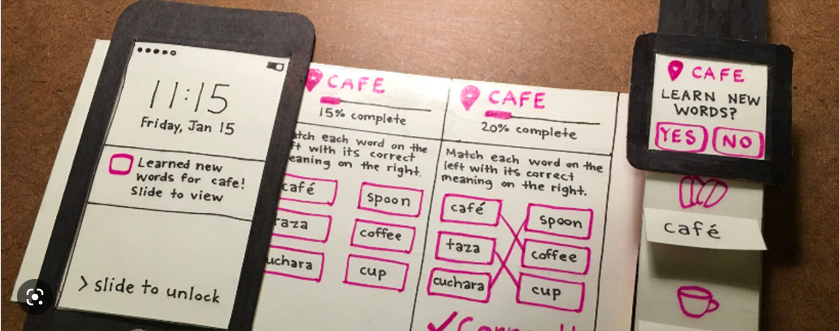 11:15
Friday, Jan 15
Learned new
words for cafe!
Slide to view
> slide to unlock
CAFE
15% complete
atch each word on the
ft with its correct
eaning on the right.
café
spoon
taza
coffee
uchara
cup
CAFE
20% complete
Match each word on the
left with its correct
meaning on the right.
café
spoon
taza
coffee
cuchara
cup
✓Correct!
CAFE
LEARN NEW
WORDS?
YES
NO
café